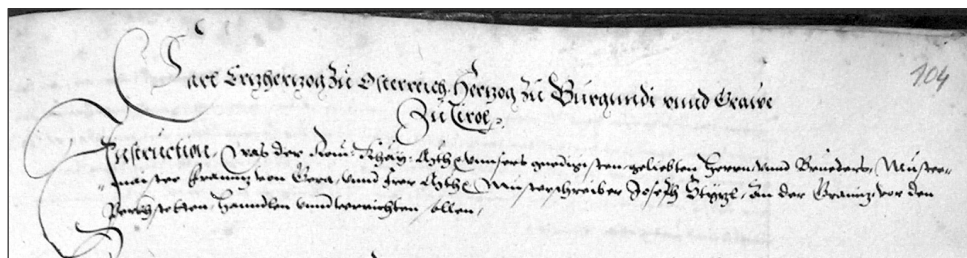 104
Carl Ertzhertzog zů Österreich Hertzog zů Burgundi vnnd Grave
Zů Tirol
Instruction, Was der Röm: Khay: Mtt: vnnsers genedigisten geliebten Herrn vnnd Brueders, Můster-
maister Franntz von und Irer Mtt: Můsterschreiber Joseph an der Gränitz, vor den
hanndlen vnnd verrichten sollen,